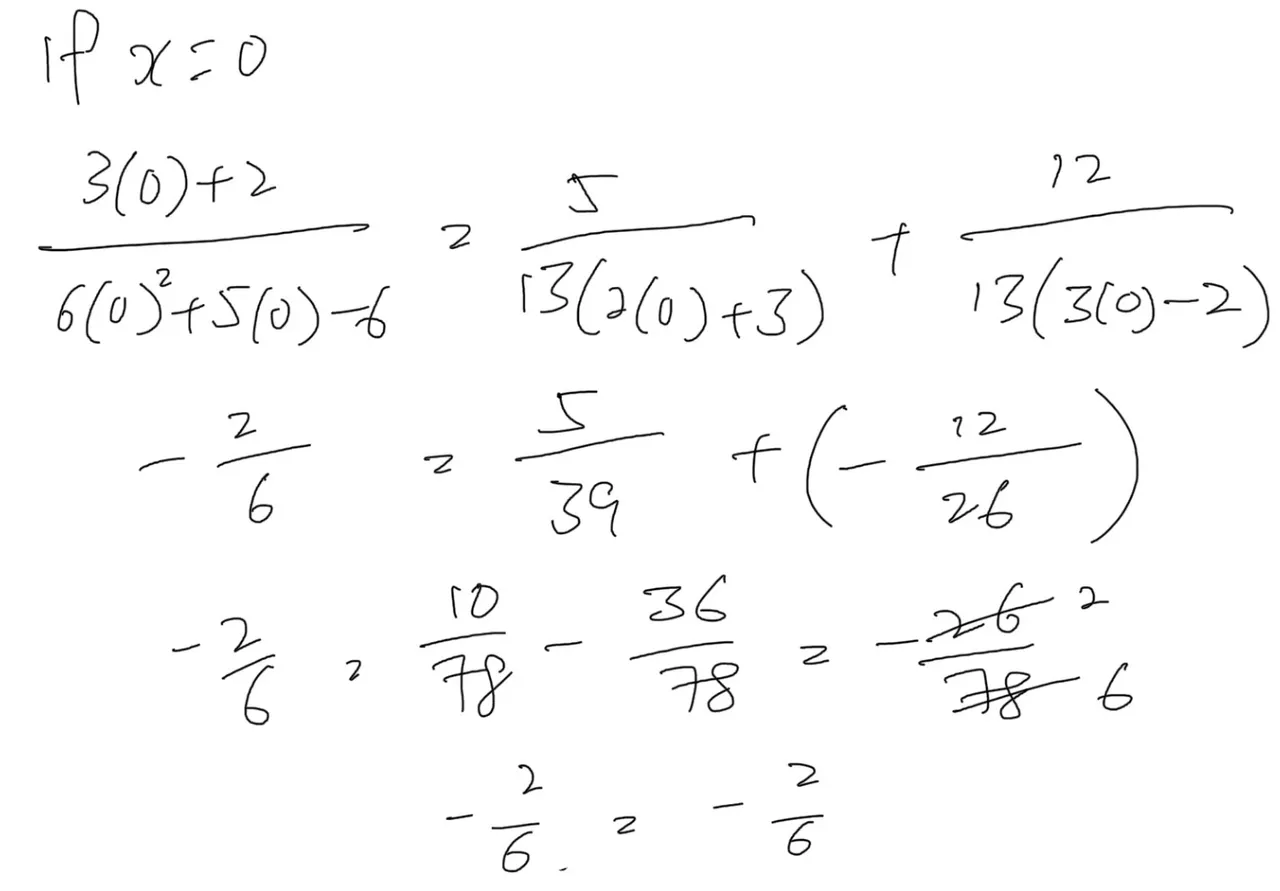 if x = 0
\frac{3(0)+2}{6(0)^2+5(0)-6} = \frac{5}{13(2(0)+3)} + \frac{12}{13(3(0)-2)}
-\frac{2}{6} = \frac{5}{39} + \left(-\frac{12}{26}\right)
-\frac{2}{6} = \frac{10}{78} - \frac{36}{78} = -\frac{\cancel{26} 2}{\cancel{78} 6}
-\frac{2}{6} = -\frac{2}{6}